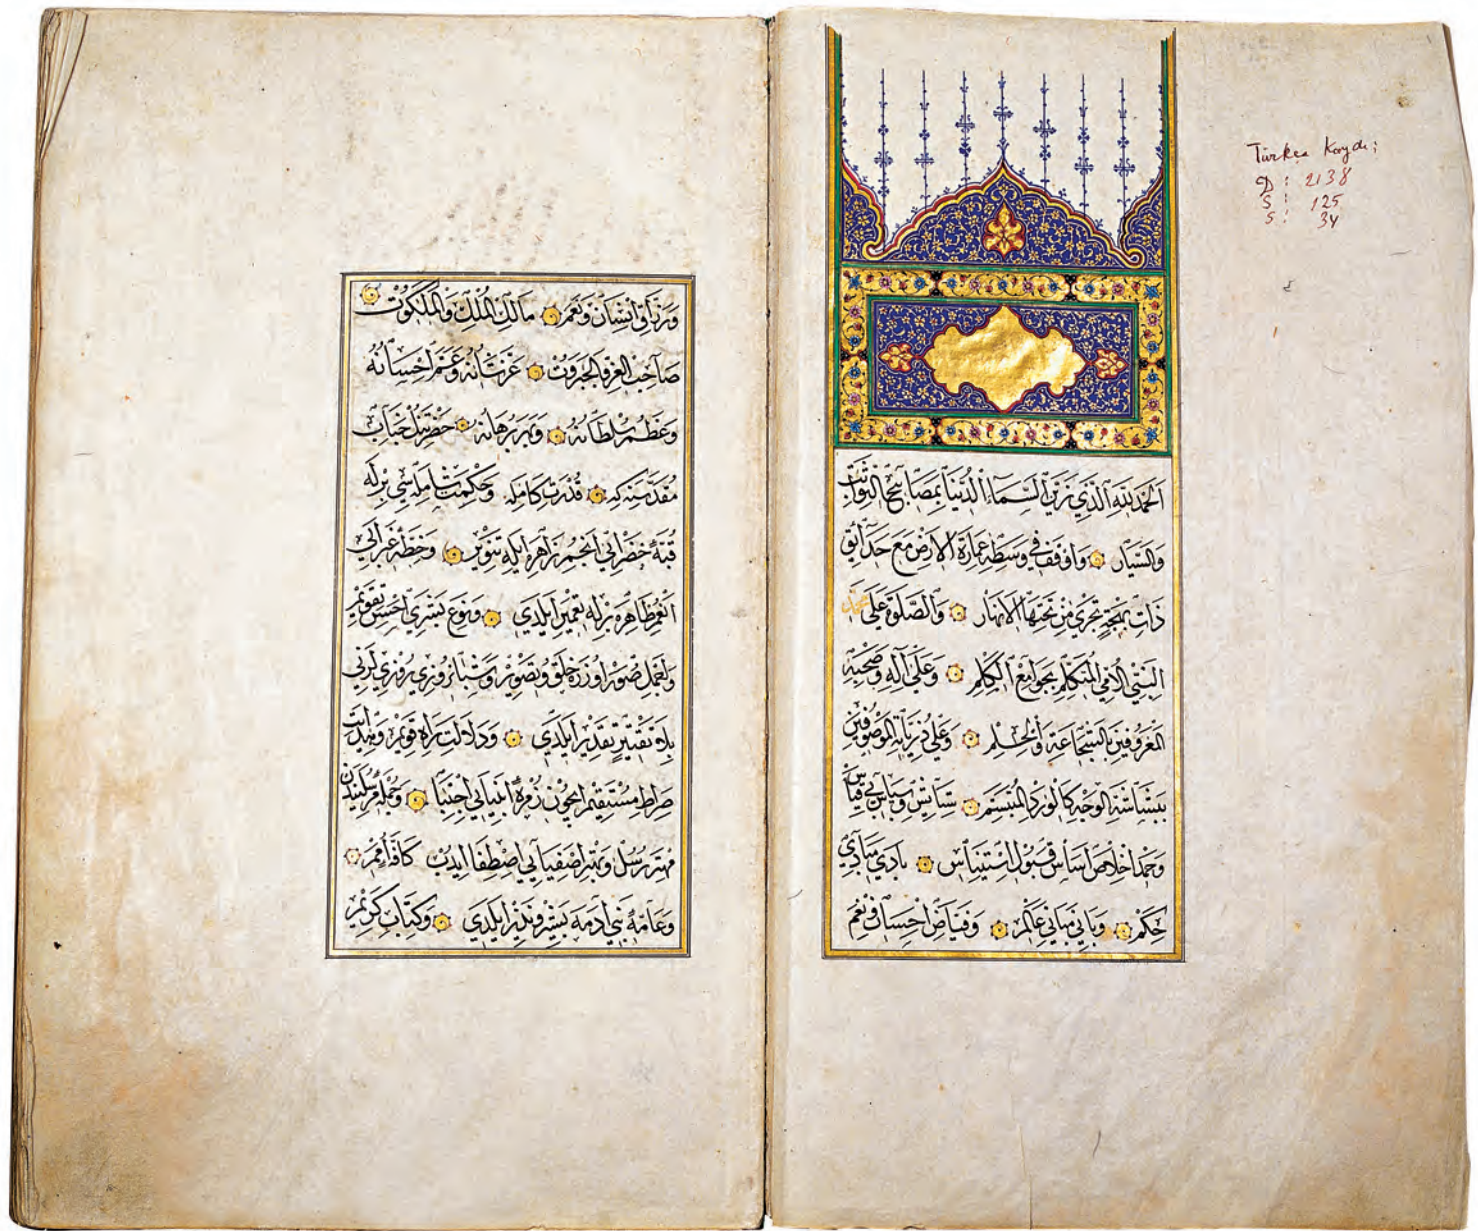 الحمد لله الذي زين السماء الدنيا بمصابيح الثوابت
والسيار واوقف في وسطه عمارة الارض مع حدائق
ذات بهجة تجري من تحتها الانهار والصلوة على محمد
النبي الامي المتكلم بجوامع الكلم وعلى آله وصحبه
المعروفين بالشجاعة والحلم وعلى ذرياته الموصوفين
ببشاشة الوجه كالورد المبتسم ستايش وسپاس بي قياس
وحمد اخلاص اساس قبول استيناس بادي مبادي
حكم وباني مباني عالم وفياض احسان ونعم
ورزاق انسان ونعم مالك الملك والملكوت
صاحب العزة والجبروت عز شانه وعم احسانه
وعظم سلطانه وبهر برهانه حضرتنك جناب
مقدسنه كه قدرت كامله وحكمت شامله سي برله
قبه خضرائي انجم زاهره ايله تنوير وخطه غبرائي
انعم ظاهره برله تعمير ايلدي ونوع بشري احسن تقويم
واجمل صور اوزره خلق وتصوير وشبانروزي روزيلرني
بلا تقتير تقدير ايلدي ودلالت راه قويم وهدايت
صراط مستقيم ايچون زمره انبيائي اجتبا وجمله مرسليندن
مهتر رسل وبهتر اصفيائي اصطفا ايدب كافه امم
وعامه بني ادمه بشير ونذير ايلدي وكتاب كريم
Türkçe Kaydı;
D: 2138
S: 125
S: 34